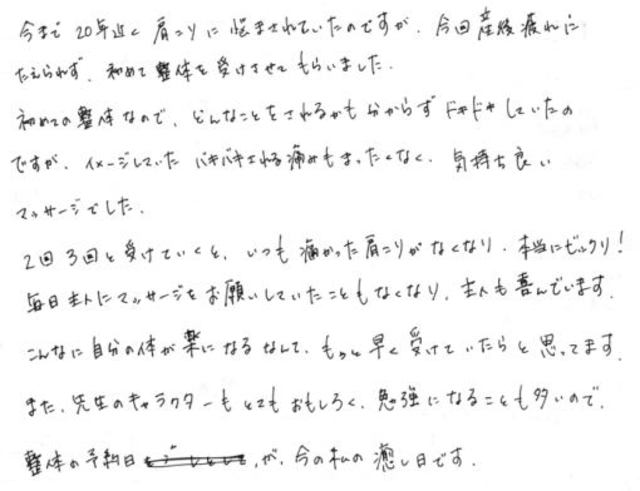 今まで20年近く肩こりに悩まされていたのですが、今回産後疲れに
たえられず、初めて整体を受けさせてもらいました。
初めての整体なので、どんなことをされるかも分からずドキドキしていたの
ですが、イメージしていたバキバキされる痛みもまったくなく、気持ち良い
マッサージでした。
2回3回と受けていくと、いつも痛かった肩こりがなくなり、本当にビックリ!
毎日主人にマッサージをお願いしていたこともなくなり、主人も喜んでいます。
こんなに自分の体が楽になるなんて、もっと早く受けていたらと思ってます。
また、先生のキャラクターもとてもおもしろく、勉強になることも多いので、
整体の予約日が、今の私の癒し日です。